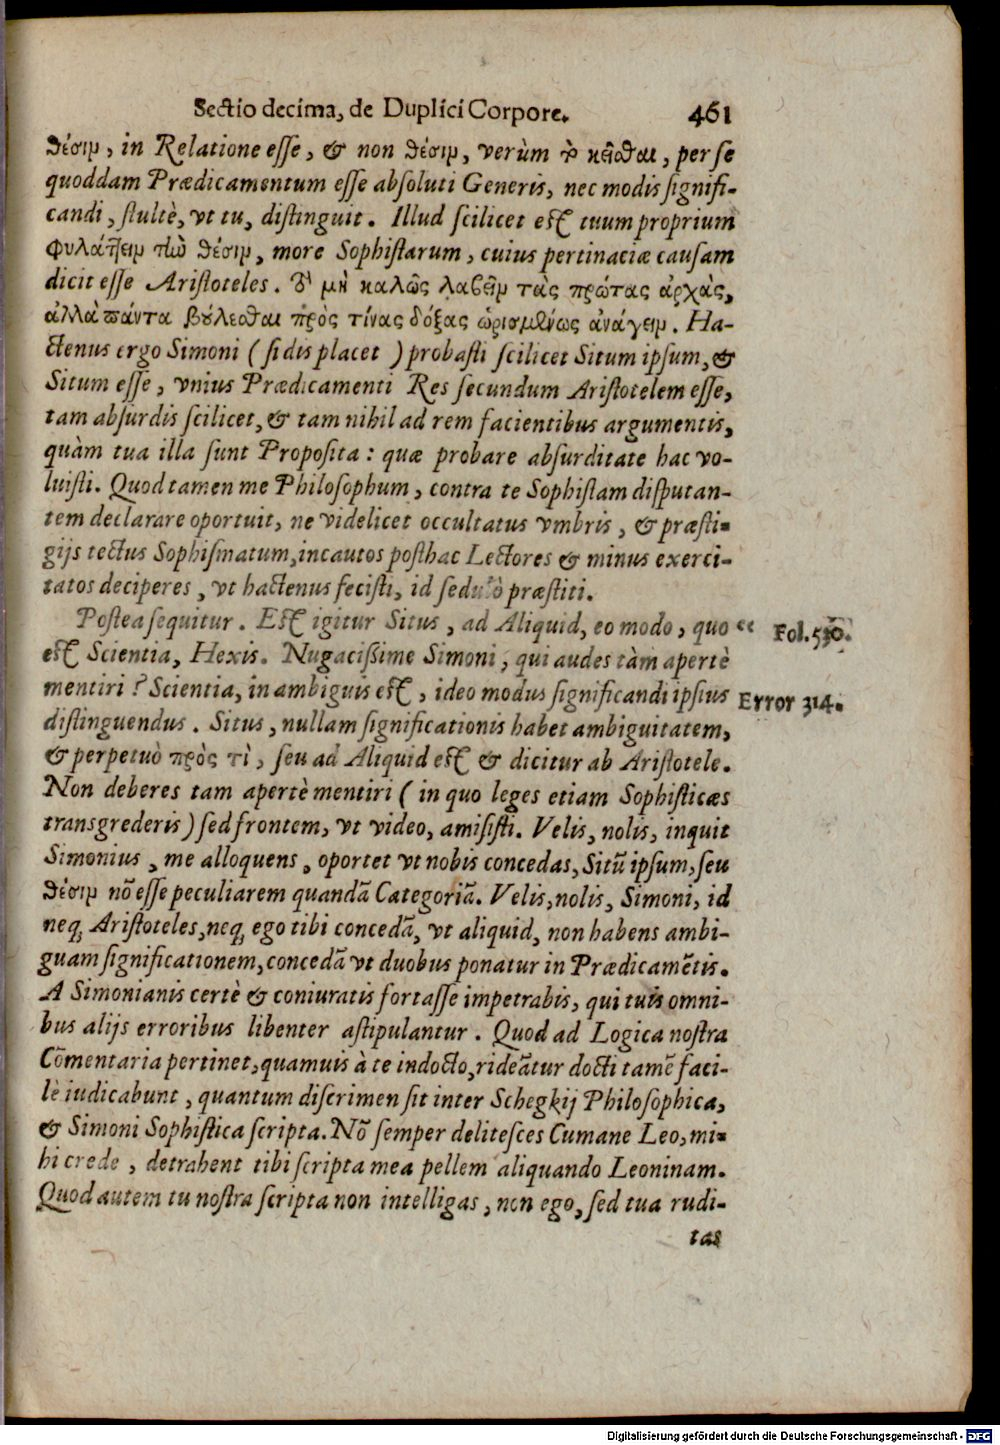 Sectio decima, de Duplici Corpore. 461
θέσιν, in Relatione esse, & non θέσιν, verùm τὸ κεῖσθαι, per se
quoddam Prædicamentum esse absoluti Generis, nec modis signifi-
candi, stultè, vt tu, distinguit. Illud scilicet est tuum proprium
φυλάττειν τὴν θέσιν, more Sophistarum, cuius pertinaciæ causam
dicit esse Aristoteles. τὸ μὴ καλῶς λαβεῖν τὰς πρώτας ἀρχὰς,
ἀλλὰ πάντα βούλεσθαι πρὸς τίνας δόξας ὡρισμένως ἀνάγειν. Ha-
ctenus ergo Simoni (si dis placet) probasti scilicet Situm ipsum, &
Situm esse, vnius Prædicamenti Res secundum Aristotelem esse,
tam absurdis scilicet, & tam nihil ad rem facientibus argumentis,
quàm tua illa sunt Proposita: quæ probare absurditate hac vo-
luisti. Quod tamen me Philosophum, contra te Sophistam disputan-
tem declarare oportuit, ne videlicet occultatus vmbris, & præsti-
gijs tectus Sophismatum, incautos posthac Lectores & minus exerci-
tatos deciperes, vt hactenus fecisti, id sedulò præstiti.
Postea sequitur. Est igitur Situs, ad Aliquid, eo modo, quo “ Fol. 530.
est Scientia, Hexis. Nugacissime Simoni, qui audes tàm apertè
mentiri? Scientia, in ambiguis est, ideo modus significandi ipsius Error 314.
distinguendus. Situs, nullam significationis habet ambiguitatem,
& perpetuò πρὸς τὶ, seu ad Aliquid est & dicitur ab Aristotele.
Non deberes tam apertè mentiri (in quo leges etiam Sophisticæs
transgrederis) sed frontem, vt video, amisisti. Velis, nolis, inquit
Simonius, me alloquens, oportet vt nobis concedas, Sitū ipsum, seu
θέσιν nō esse peculiarem quandā Categoriā. Velis, nolis, Simoni, id
neq; Aristoteles, neq; ego tibi concedā, vt aliquid, non habens ambi-
guam significationem, concedā vt duobus ponatur in Prædicamētis.
A Simonianis certè & coniuratis fortasse impetrabis, qui tuis omni-
bus alijs erroribus libenter astipulantur. Quod ad Logica nostra
Cōmentaria pertinet, quamuis à te indocto, rideātur docti tamē faci-
lè iudicabunt, quantum discrimen sit inter Schegkij Philosophica,
& Simoni Sophistica scripta. Nō semper delitesces Cumane Leo, mi-
hi crede, detrahent tibi scripta mea pellem aliquando Leoninam.
Quod autem tu nostra scripta non intelligas, non ego, sed tua rudi-
tas
Digitalisierung gefördert durch die Deutsche Forschungsgemeinschaft - DFG